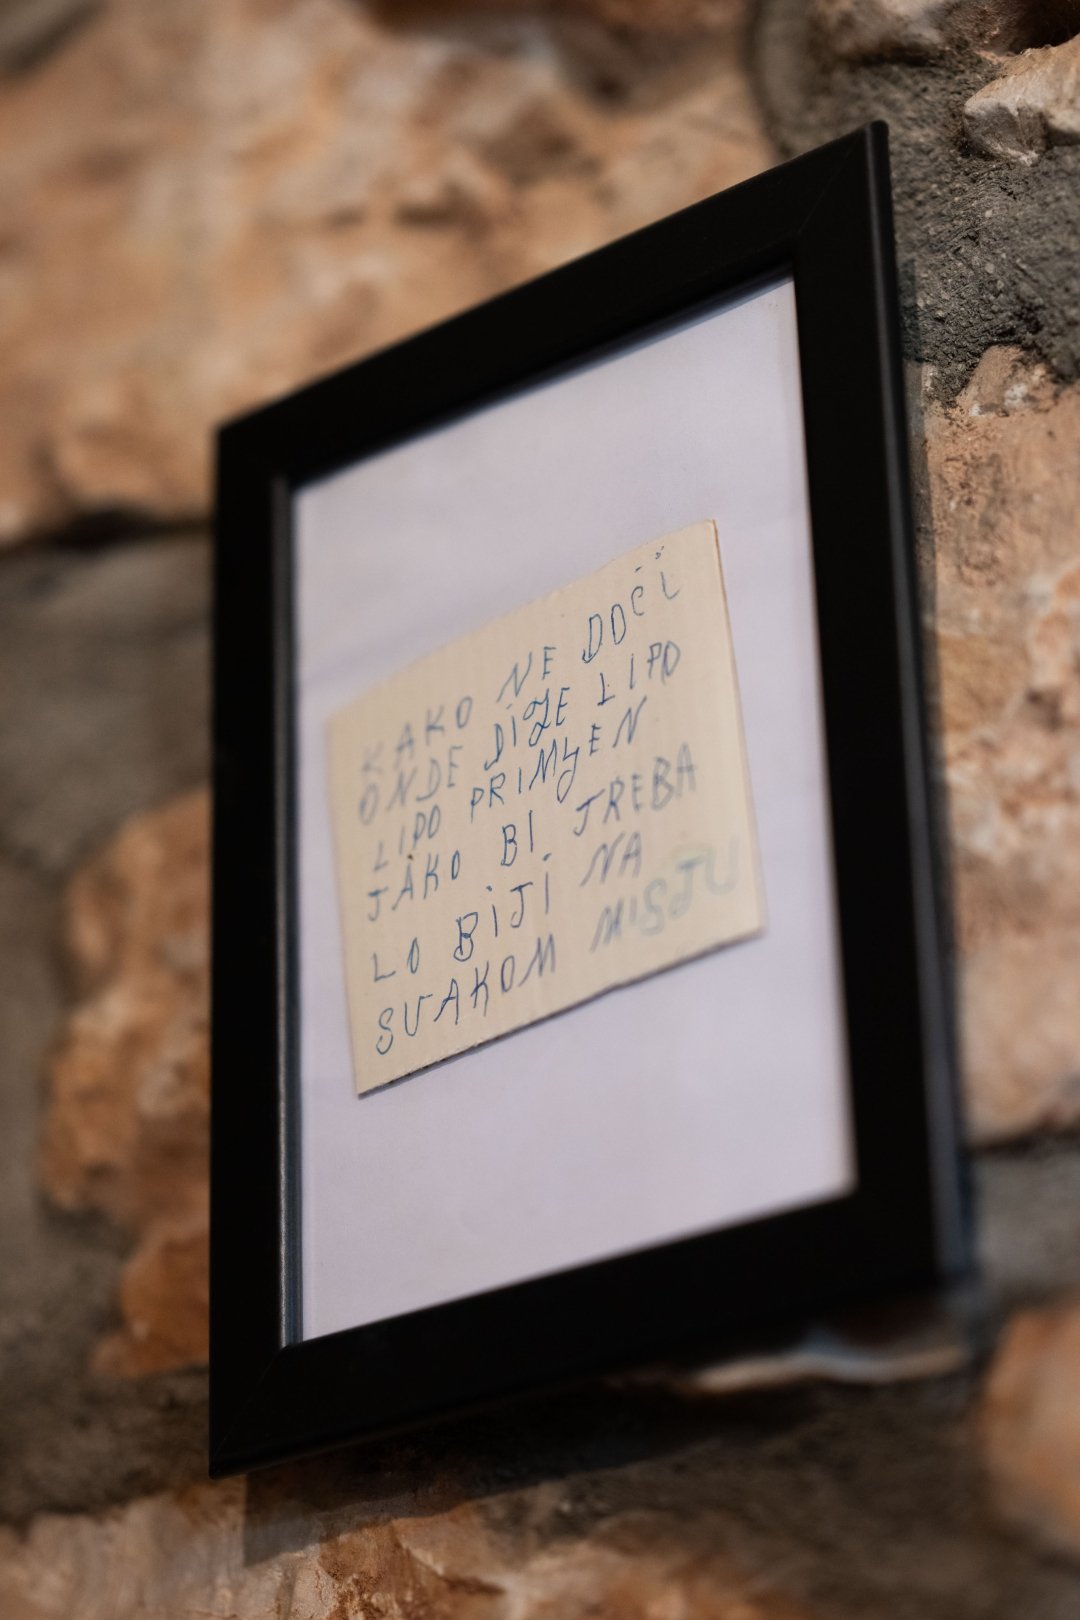 KAKO NE DOĆI
ONDE DIZE LIPO
LIPO PRIMYEN
JAKO BI TREBA
LO BITI NA
SVAKOM MISTU